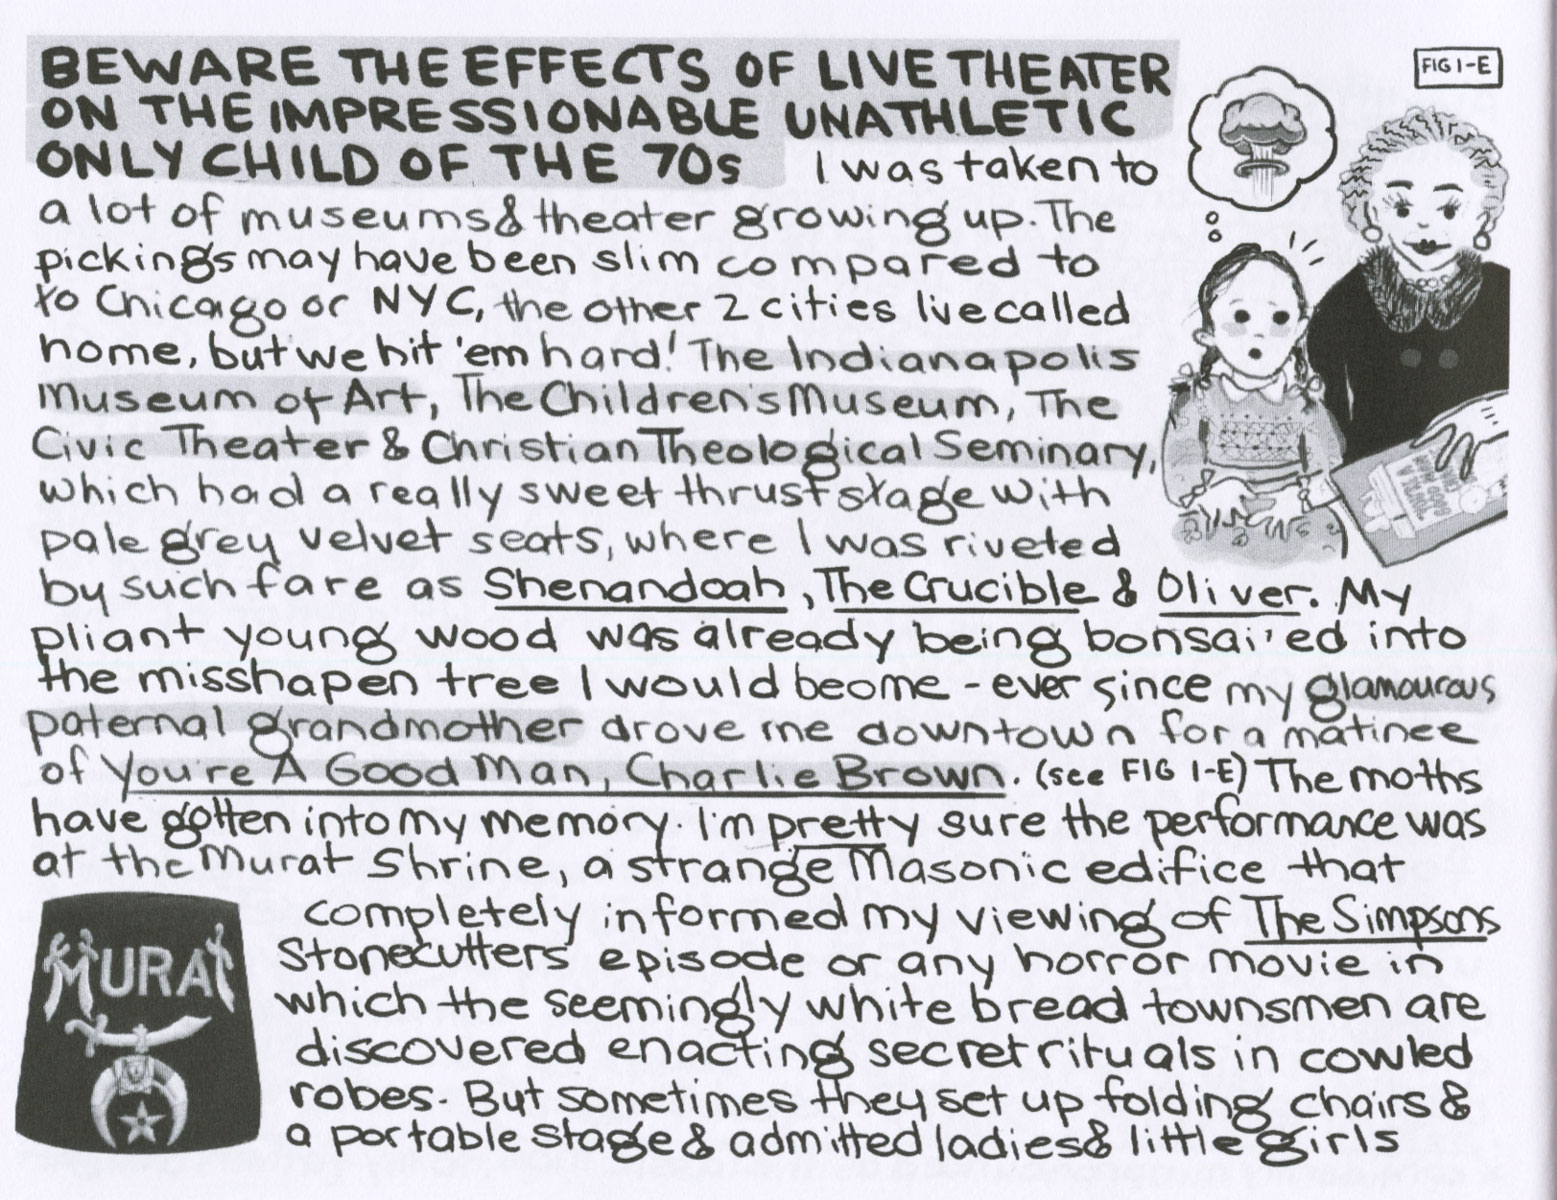 BEWARE THE EFFECTS OF LIVE THEATER
ON THE IMPRESSIONABLE UNATHLETIC
ONLY CHILD OF THE 70s I was taken to
a lot of museums & theater growing up. The
pickings may have been slim compared to
to Chicago or NYC, the other 2 cities I've called
home, but we hit 'em hard! The Indianapolis
Museum of Art, The Children's Museum, The
Civic Theater & Christian Theological Seminary,
which had a really sweet thrust stage with
pale grey velvet seats, where I was riveted
by such fare as Shenandoah, The Crucible & Oliver. My
pliant young wood was already being bonsai'ed into
the misshapen tree I would beome - ever since my glamourous
paternal grandmother drove me downtown for a matinee
of You're A Good Man, Charlie Brown. (see FIG 1-E) The moths
have gotten into my memory. I'm pretty sure the performance was
at the Murat Shrine, a strange Masonic edifice that
completely informed my viewing of The Simpsons
Stonecutters episode or any horror movie in
which the seemingly white bread townsmen are
discovered enacting secret rituals in cowled
robes. But sometimes they set up folding chairs &
a portable stage & admitted ladies & little girls
FIG 1-E
YOU'RE A
GOOD MAN
MURAT